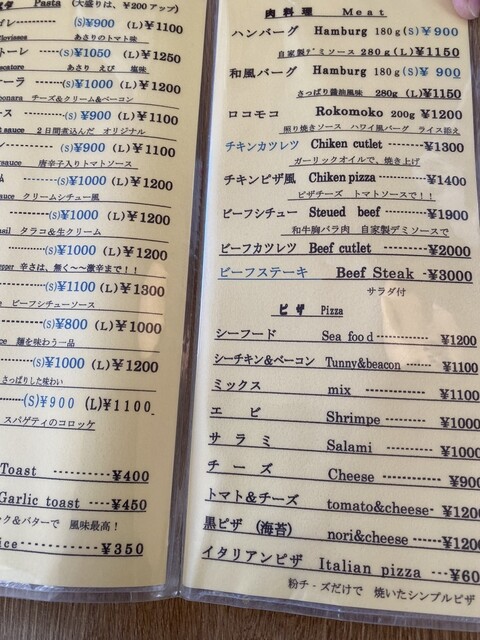 Pasta (大盛りは、¥200アップ)
(S)¥900 (L)¥1100
あさりのトマト味
(S)¥1050 (L)¥1250
あさり えび 塩味
(S)¥1000 (L)¥1200
チーズ&クリーム&ベーコン
(S)¥900 (L)¥1100
2日間煮込んだ オリジナル
(S)¥900 (L)¥1100
唐辛子入りトマトソース
(S)¥1000 (L)¥1200
クリームシチュー風
(S)¥1000 (L)¥1200
タラコ&生クリーム
(S)¥1000 (L)¥1200
辛さは、無く~~激辛まで!!
(S)¥1100 (L)¥1300
ビーフシチューソース
(S)¥800 (L)¥1000
麺を味わう一品
(S)¥1000 (L)¥1200
さっぱりした味わい
(S)¥900 (L)¥1100
スパゲティのコロッケ
Toast ¥400
Garlic toast ¥450
ク&バターで 風味最高!
ice ¥350
肉料理 Meat
ハンバーグ Hamburg 180g(S)¥900
自家製デミソース 280g(L)¥1150
和風バーグ Hamburg 180g(S)¥900
さっぱり醤油風味 280g (L)¥1150
ロコモコ Rokomoko 200g ¥1200
照り焼きソース ハワイ風バーグ ライス添え
チキンカツレツ Chiken cutlet ¥1300
ガーリックオイルで、焼き上げ
チキンピザ風 Chiken pizza ¥1400
ピザチーズ トマトソースで!!
ビーフシチュー Steued beef ¥1900
和牛胸バラ肉 自家製デミソースで
ビーフカツレツ Beef cutlet ¥2000
ビーフステーキ Beef Steak -¥3000
サラダ付
ピザ Pizza
シーフード Sea food ¥1200
シーチキン&ベーコン Tunny&beacon ¥1100
ミックス mix ¥1100
エビ Shrimpe ¥1000
サラミ Salami ¥1000
チーズ Cheese ¥900
トマト&チーズ tomato&cheese- ¥1200
黒ピザ (海苔) nori&cheese ¥1200
イタリアンピザ Italian pizza ¥60
粉チ-ズだけで 焼いたシンプルピザ